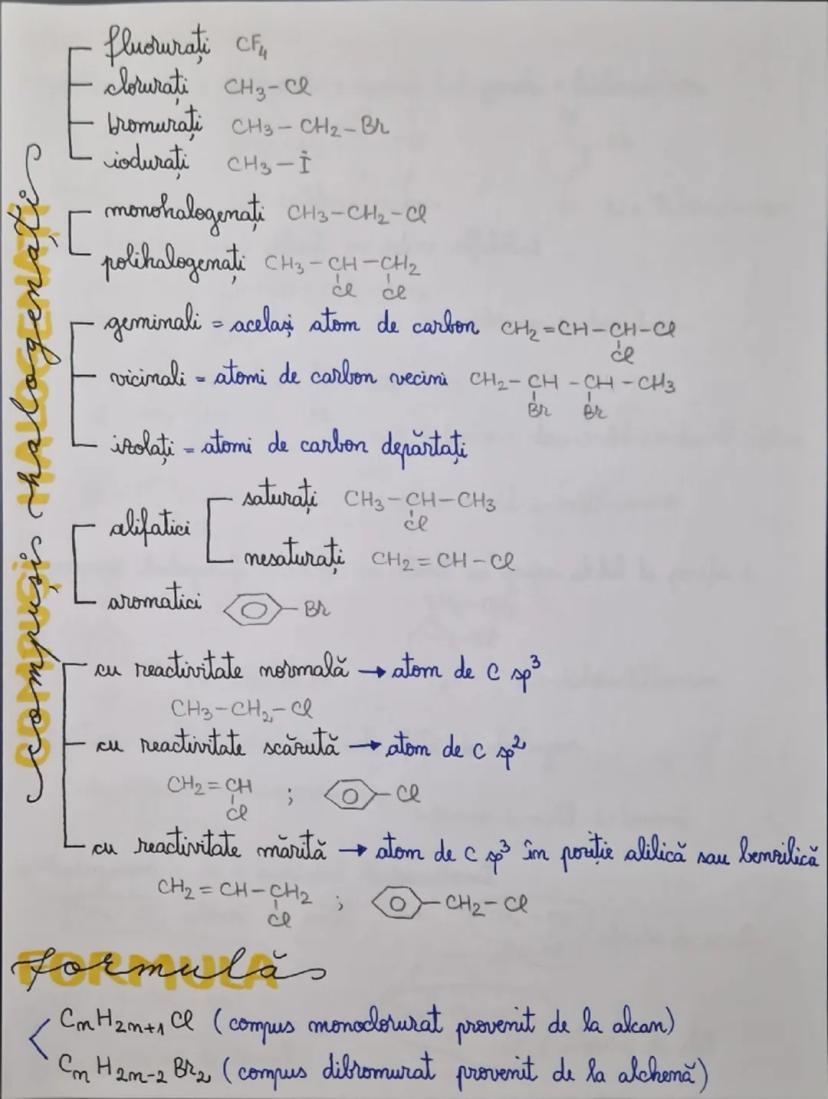 fluorurați CF₄
clorurați CH₃–Cl
bromurați CH₃–CH₂–Br
iodurați CH₃–I
COMPUȘI HALOGENAȚI
compuși halogenați
monohalogenați CH₃–CH₂–Cl
polihalogenați CH₃–CH–CH₂
Cl Cl
geminali = același atom de carbon CH₂=CH–CH–Cl
Cl
vicinali = atomi de carbon vecini CH₂–CH–CH–CH₃
Br Br
izolați = atomi de carbon depărtați
alifatici
saturați CH₃–CH–CH₃
Cl
nesaturați CH₂=CH–Cl
aromatici –Br
cu reactivitate normală → atom de C sp³
CH₃–CH₂–Cl
cu reactivitate scăzută → atom de C sp²
CH₂=CH ; –Cl
Cl
cu reactivitate mărită → atom de C sp³ în poziție alilică sau benzilică
CH₂=CH–CH₂ ; –CH₂–Cl
Cl
FORMULĂ
formulă
CₙH₂ₙ₊₁Cl (compus monoclorurat provenit de la alcan)
CₙH₂ₙ₋₂Br₂ (compus dibromurat provenit de la alchenă)